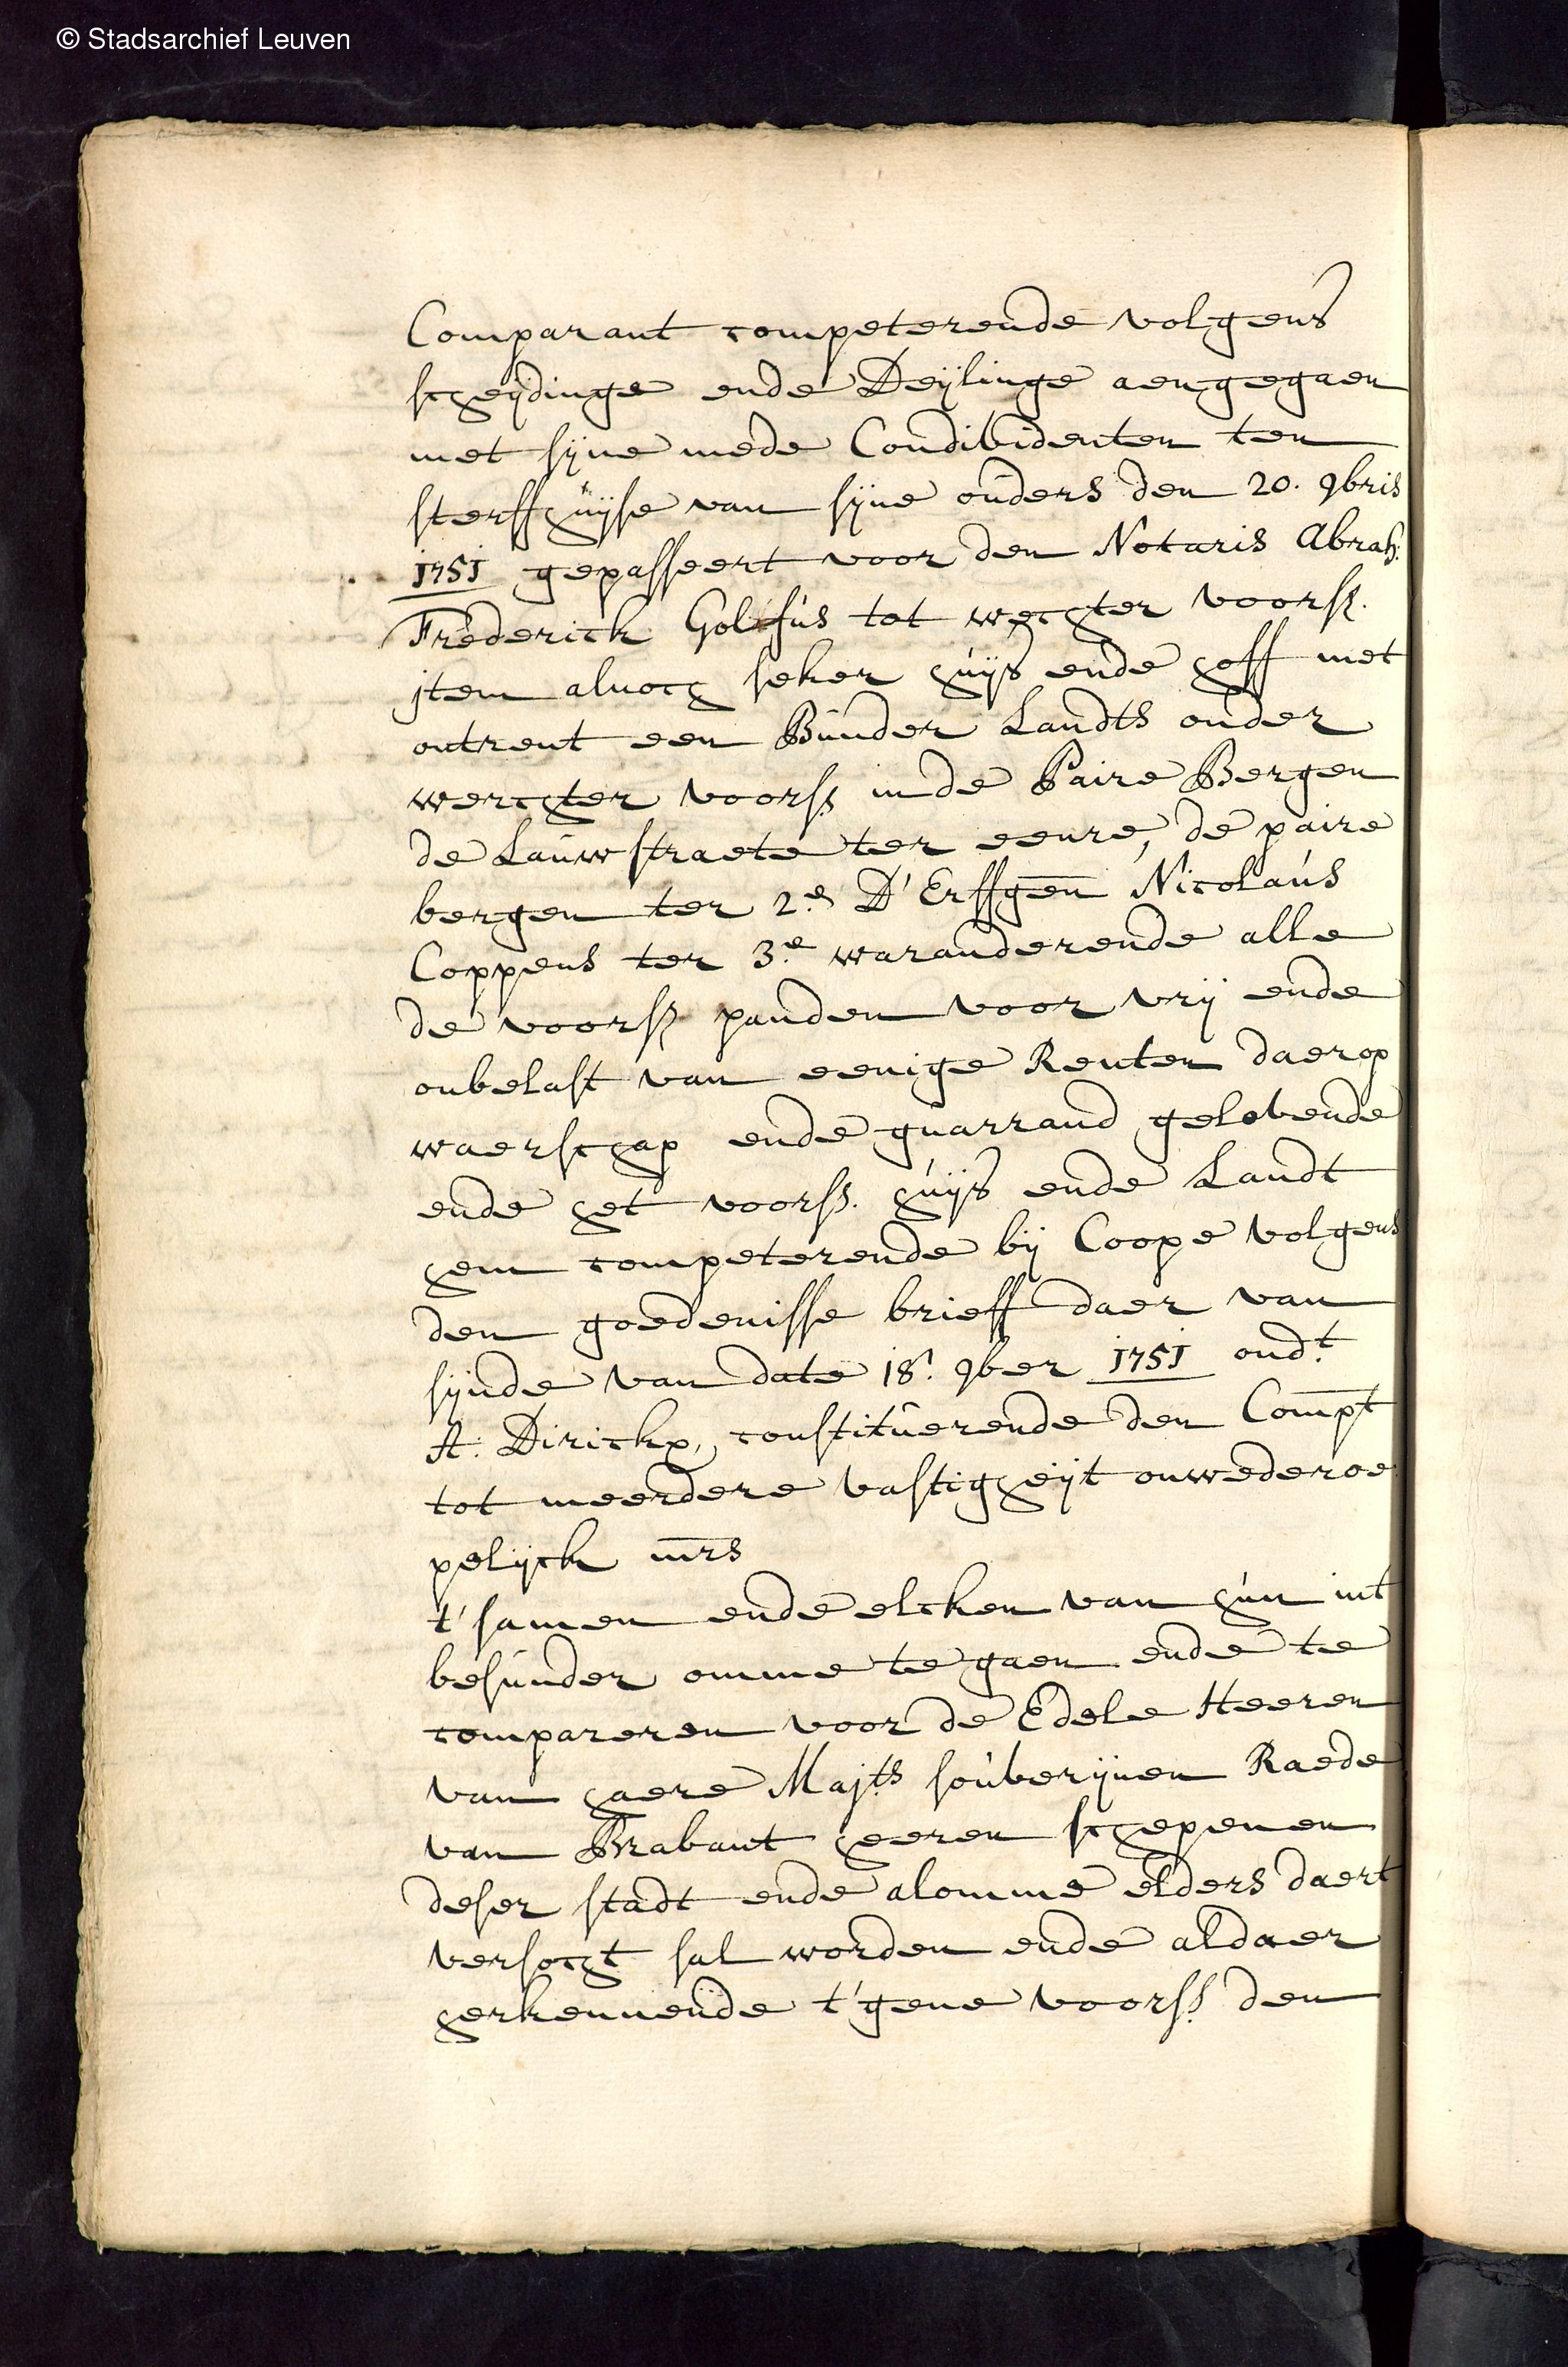 © Stadsarchief Leuven
Comparant competerende volgens
scheijdinge ende Deijlinge aengegaen
met sijne mede Condividenten ten
sterffhuijse van sijne ouders den 20. 9bris
1751 gepasseert voor den Notaris Abrah:
Frederick Golfus tot wechter voorss.
item alnoch seker huijs ende hoff met
ontrent een Bunder Landts onder
werchter voorss in de Paire Bergen
de Lauwstraete ter eenre, de paire
bergen ter 2.e D'Erffgen Nicolaus
Coppens ter 3.e waranderende alle
de voorss panden voor vrij ende
onbelast van eenige Renten daerop
waerschap ende guarrand gelovende
ende het voorss. huijs ende Landt
hem competerende bij Coope volgens
den goedenisse brieff daer van
sijnde van date 18. 9ber 1751 ondt
A. Dirickx, constituerende den Compt
tot meerdere vastigheijt onwederoe
pelijck mrs
t'samen ende elcken van hun int
besunder omme te gaen ende te
compareren voor de Edele Heeren
van haere Majts souverijnen Raede
van Brabant heeren schepenen
deser stadt ende alomme elders daert
versocht sal worden ende aldaer
herkennende t'gene voorss. den